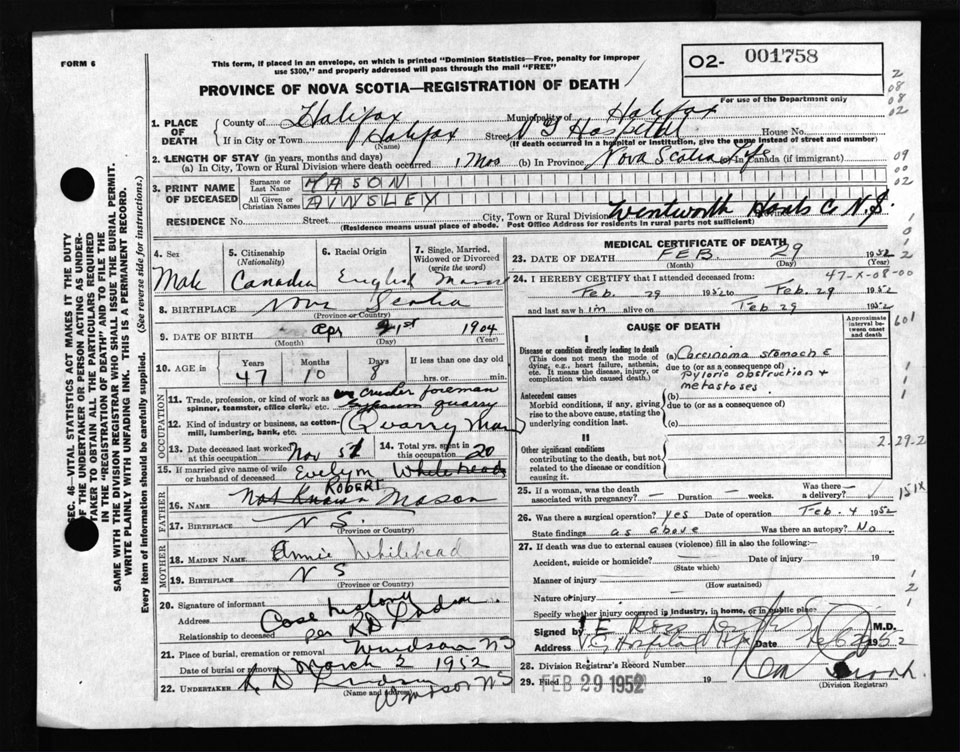 FORM 6
This form, if placed in an envelope, on which is printed "Dominion Statistics—Free, penalty for improper
use $300," and properly addressed will pass through the mail "FREE"
O2- 001758
For use of the Department only
PROVINCE OF NOVA SCOTIA—REGISTRATION OF DEATH
1. PLACE OF DEATH
County of Halifax Municipality of Halifax
If in City or Town Halifax Street V G Hospital House No.
(Name) (If death occurred in a hospital or institution, give the name instead of street and number)
2. LENGTH OF STAY (in years, months and days)
(a) In City, Town or Rural Division where death occurred 1 Mos (b) In Province Nova Scotia Life In Canada (if immigrant)
3. PRINT NAME OF DECEASED
Surname or Last Name MASON
All Given or Christian Names AINSLEY
RESIDENCE No. Street City, Town or Rural Division Wentworth Hants Co N.S.
(Residence means usual place of abode. Post Office Address for residents in rural parts not sufficient)
4. Sex Male
5. Citizenship (Nationality) Canadia
6. Racial Origin English
7. Single, Married, Widowed or Divorced (write the word)
8. BIRTHPLACE Nova Scotia
(Province or Country)
9. DATE OF BIRTH Apr 21st 1904
(Month) (Day) (Year)
10. AGE in Years 47 Months 10 Days 8 If less than one day old hrs. or min.
OCCUPATION
11. Trade, profession, or kind of work as spinner, teamster, office clerk, etc. crusher foreman
gypsum quarry
12. Kind of industry or business, as cotton-mill, lumbering, bank, etc. (Quarry Man)
13. Date deceased last worked at this occupation Nov 51
14. Total yrs. spent in this occupation 20
15. If married give name of wife or husband of deceased Evelyn Whitehead
FATHER
16. NAME Not Known ROBERT Mason
17. BIRTHPLACE N S.
(Province or Country)
MOTHER
18. MAIDEN NAME Annie Whitehead
19. BIRTHPLACE N S
(Province or Country)
20. Signature of informant Case history
Address per R D Lindsay
Relationship to deceased
21. Place of burial, cremation or removal Windsor NS
Date of burial or removal March 2 1952
22. UNDERTAKER R D Lindsay
(Name and address) Windsor NS
MEDICAL CERTIFICATE OF DEATH
23. DATE OF DEATH FEB. 29 1952
(Month) (Day) (Year)
47-X-08-00
24. I HEREBY CERTIFY that I attended deceased from:
Feb. 29 1952 to Feb. 29 1952
and last saw him alive on Feb 29 1952
CAUSE OF DEATH
Approximate interval between onset and death
601
I
Disease or condition directly leading to death
(This does not mean the mode of dying, e.g., heart failure, asthenia, etc. It means the disease, injury, or complication which caused death.)
(a) Carcinoma stomach c
due to (or as a consequence of)
Pyloric obstruction +
metastoses
Antecedent causes
Morbid conditions, if any, giving rise to the above cause, stating the underlying condition last.
(b)
due to (or as a consequence of)
(c)
II
Other significant conditions
contributing to the death, but not related to the disease or condition causing it.
2-29-2
25. If a woman, was the death associated with pregnancy? — Duration — weeks. Was there a delivery? —
151X
26. Was there a surgical operation? yes Date of operation Feb. 4 1952
State findings as above Was there an autopsy? No
27. If death was due to external causes (violence) fill in also the following:—
Accident, suicide or homicide? Date of injury 19
(State which)
Manner of injury
(How sustained)
Nature of injury
Specify whether injury occurred in industry, in home, or in public place
Signed by M.D.
Address V.G. Hospital Hfx Date Feb 29 1952
28. Division Registrar's Record Number
29. Filed FEB 29 1952 19
(Division Registrar)
SEC. 46—VITAL STATISTICS ACT MAKES IT THE DUTY
OF THE UNDERTAKER OR PERSON ACTING AS UNDERTAKER TO OBTAIN ALL THE PARTICULARS REQUIRED
IN THE "REGISTRATION OF DEATH" AND TO FILE THE
SAME WITH THE DIVISION REGISTRAR WHO SHALL ISSUE THE BURIAL PERMIT.
WRITE PLAINLY WITH UNFADING INK. THIS IS A PERMANENT RECORD.
Every item of information should be carefully supplied. (See reverse side for instructions.)